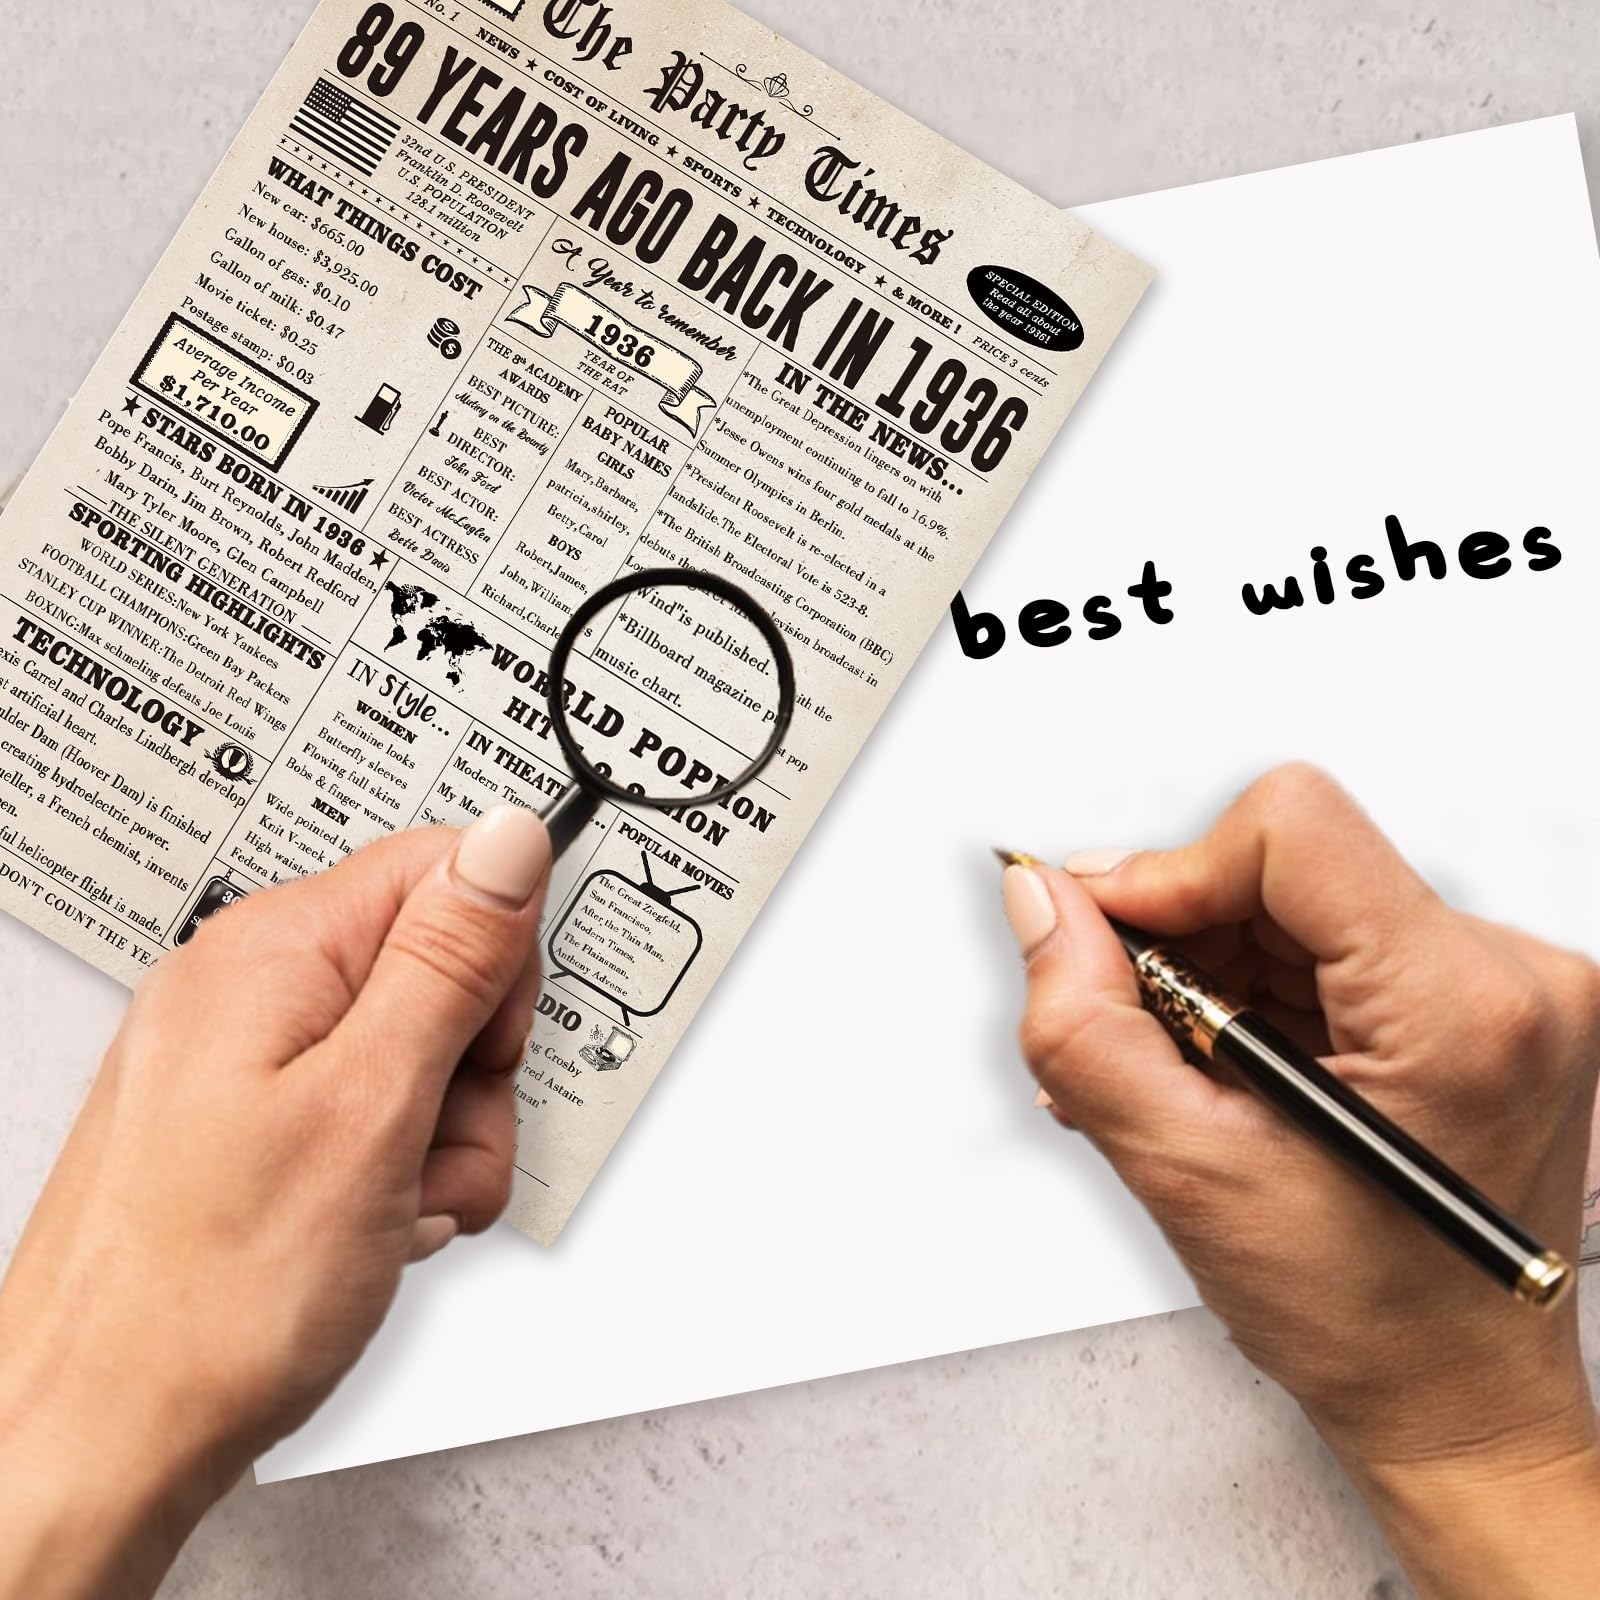 No. 1
The Party Times
NEWS ★ COST OF LIVING ★ SPORTS ★ TECHNOLOGY ★ & MORE! PRICE 3 cents
89 YEARS AGO BACK IN 1936
SPECIAL EDITION
Read all about
the year 1936!
32nd U.S. PRESIDENT
Franklin D. Roosevelt
U.S. POPULATION
128.1 million
WHAT THINGS COST
New car: $665.00
New house: $3,925.00
Gallon of gas: $0.10
Gallon of milk: $0.47
Movie ticket: $0.25
Postage stamp: $0.03
Average Income
Per Year
$1,710.00
★ STARS BORN IN 1936 ★
Pope Francis, Burt Reynolds, John Madden,
Bobby Darin, Jim Brown, Robert Redford
Mary Tyler Moore, Glen Campbell
THE SILENT GENERATION
SPORTING HIGHLIGHTS
WORLD SERIES:New York Yankees
FOOTBALL CHAMPIONS:Green Bay Packers
STANLEY CUP WINNER:The Detroit Red Wings
BOXING:Max schmeling defeats Joe Louis
TECHNOLOGY
Carrel and Charles Lindbergh develop
artificial heart.
Dam (Hoover Dam) is finished
creating hydroelectric power.
a French chemist, invents
helicopter flight is made.
DON'T COUNT THE
A Year to remember
1936
YEAR OF
THE RAT
THE 8th ACADEMY
AWARDS
BEST PICTURE:
Mutiny on the Bounty
BEST
DIRECTOR:
John Ford
BEST ACTOR:
Victor McLaglen
BEST ACTRESS
Bette Davis
POPULAR
BABY NAMES
GIRLS
Mary,Barbara,
patricia,shirley,
Betty,Carol
BOYS
Robert,James,
John,William,
Richard,Charles
IN THE NEWS...
*The Great Depression lingers on with
unemployment continuing to fall to 16.9%.
*Jesse Owens wins four gold medals at the
Summer Olympics in Berlin.
*President Roosevelt is re-elected in a
landslide.The Electoral Vote is 523-8.
*The British Broadcasting Corporation (BBC)
debuts the television broadcast in
with the
Wind"is published.
*Billboard magazine
pop
music chart.
WORLD
IN Style...
WOMEN
Feminine looks
Butterfly sleeves
Flowing full skirts
Bobs & finger waves
MEN
Wide pointed
Knit V-neck
High waist
Fedora
IN
Modern Times
My
POPULAR MOVIES
The Great Ziegfeld,
San Francisco,
After the Thin Man,
Modern Times,
The Plainsman,
Anthony Adverse
Crosby
Fred Astaire
best wishes